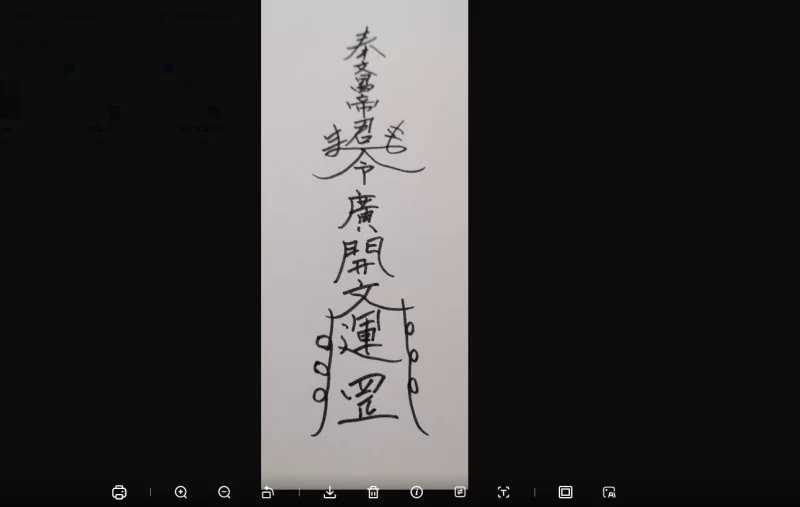 奉文昌帝君
令
廣開文運
罡